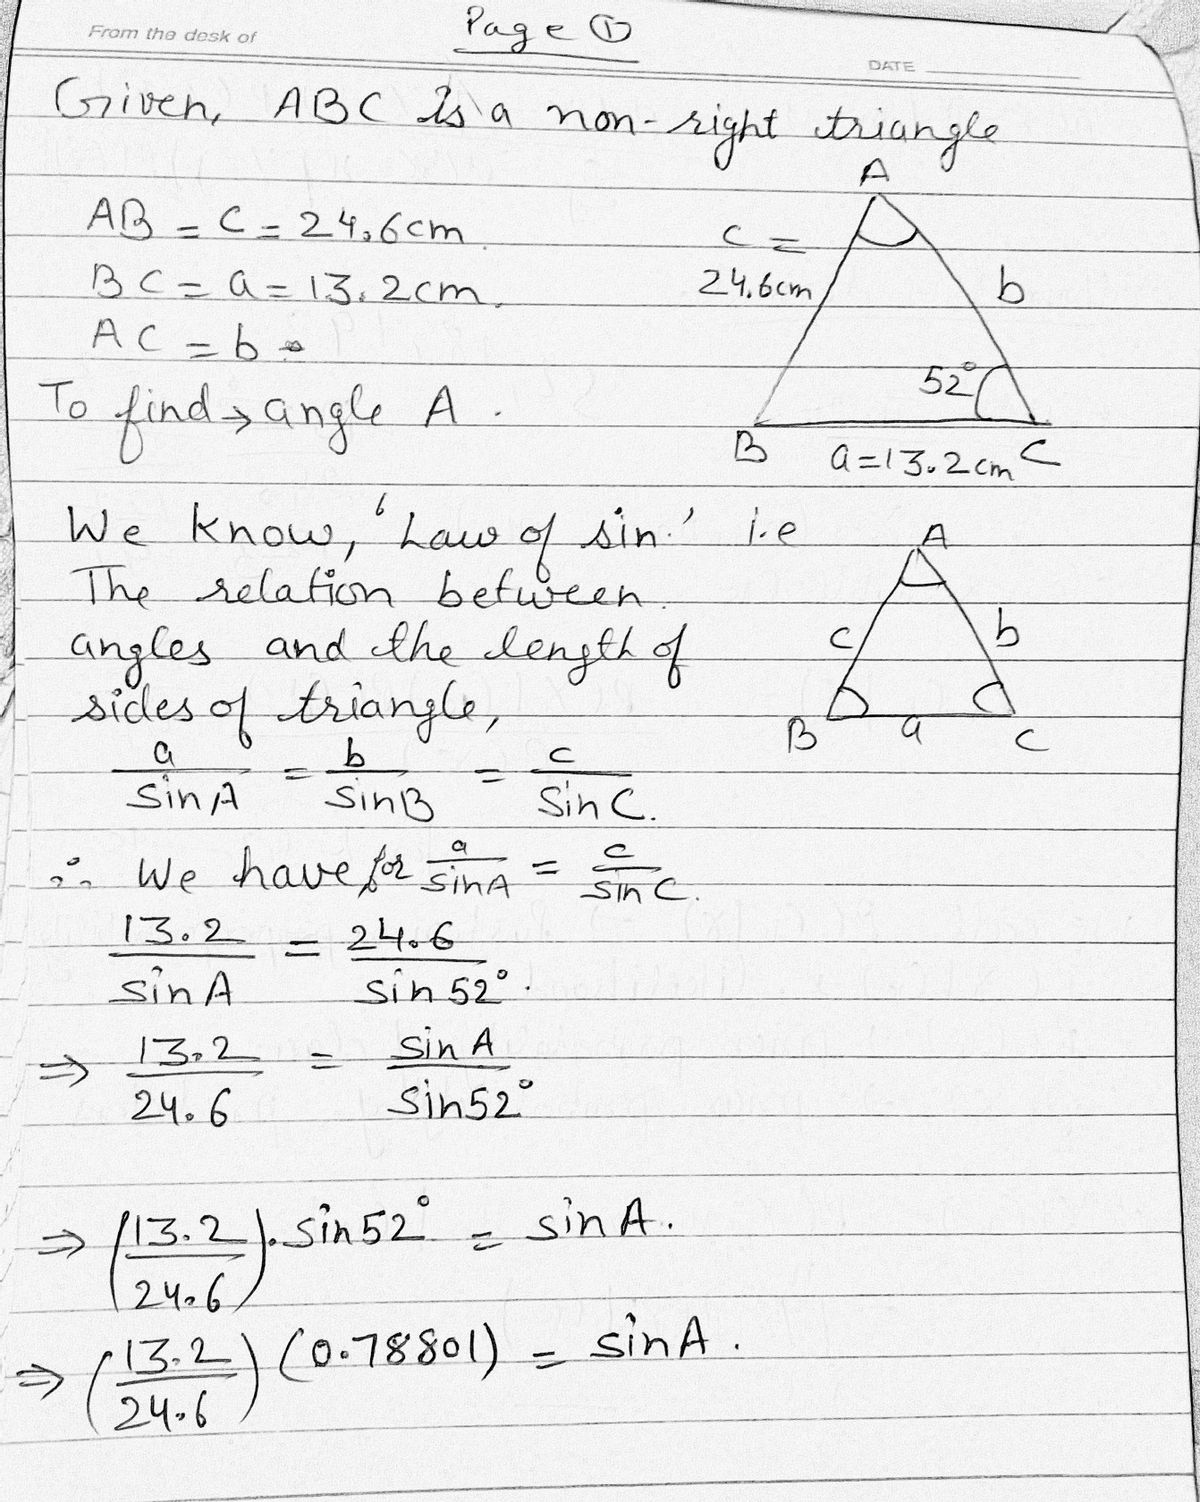 Page ①
From the desk of
DATE
Given, ABC is a non-right triangle
A
AB = C = 24.6cm.
c =
24.6cm
b
BC = a = 13.2cm.
AC = b =
52°
To find → angle A.
B a=13.2cm C
We know, 'Law of sin.' i.e
A
The relation between
angles and the length of
c b
sides of triangle,
B a C
a/sinA = b/sinB = c/sinC.
∴ We have for a/sinA = c/sinC.
13.2/sinA = 24.6/sin52°.
⇒ 13.2/24.6 = sinA/sin52°
⇒ (13.2/24.6).sin52° = sinA.
⇒ (13.2/24.6)(0.78801) = sinA.